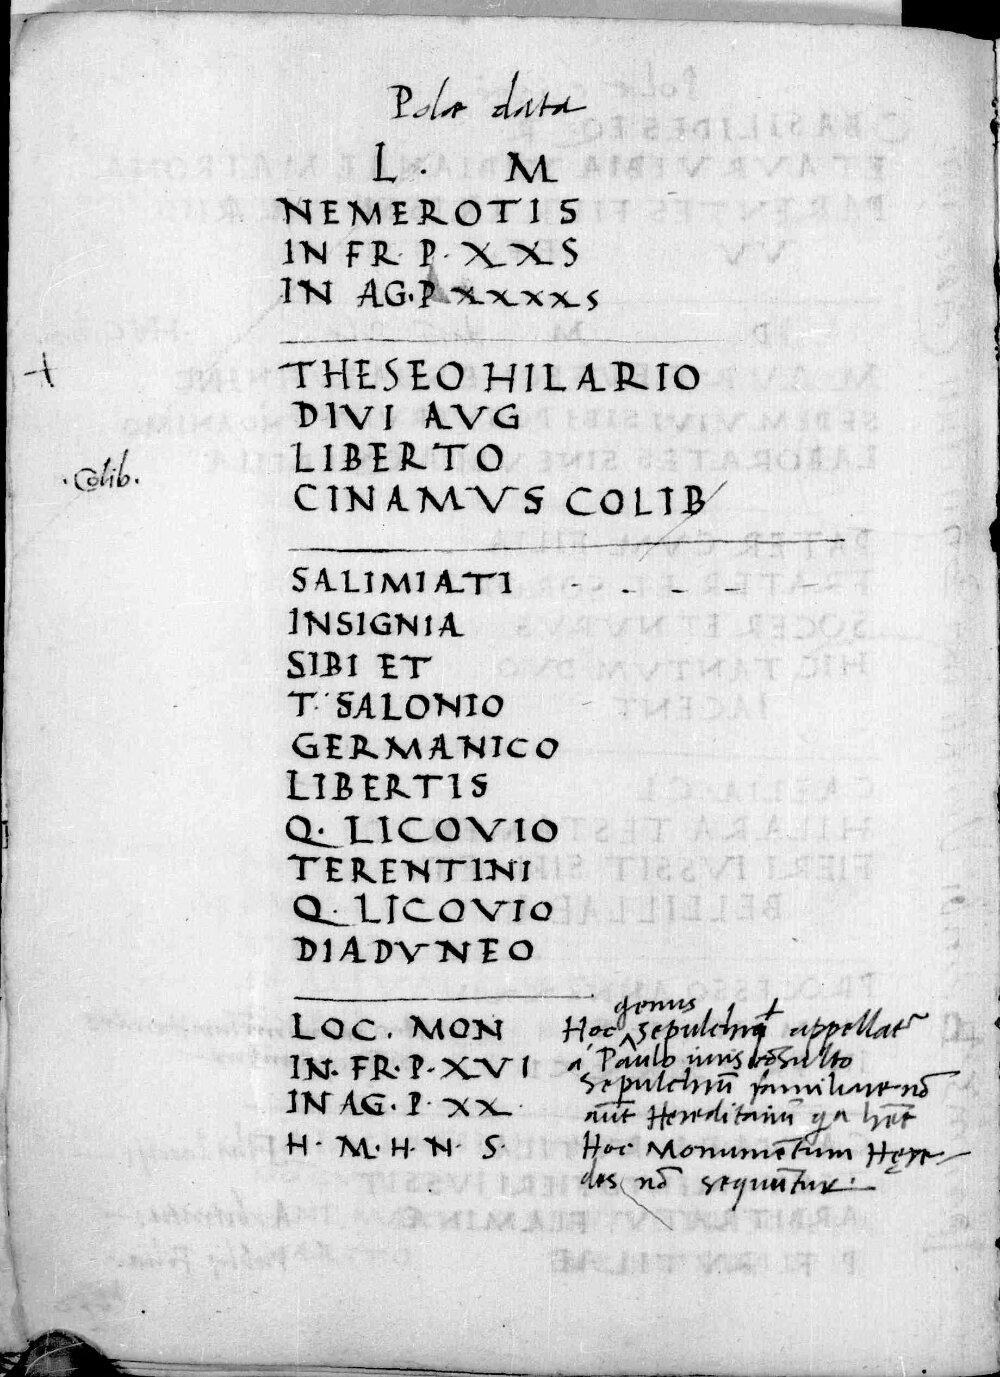 Polæ data
L · M
NEMEROTIS
IN FR· P· XXS
IN AG·P XXXXS
THESEO HILARIO
DIVI AVG
LIBERTO
·Colib·
CINAMVS COLIB
SALIMIATI - - - -
INSIGNIA
SIBI ET
T· SALONIO
GERMANICO
LIBERTIS
Q· LICOVIO
TERENTINI
Q· LICOVIO
DIADVNEO
LOC. MON
IN· FR·P·XVI
IN AG· P· XX
H· M·H·N· S·
genus
Hoc ‸ sepulchrũ appellat᷑
a Paulo iuriscõsulto
sepulchrũ familiare nõ
aũt Hereditariũ qa hẽt
Hoc Monumẽtum Hęre-
des nõ sequũtur·